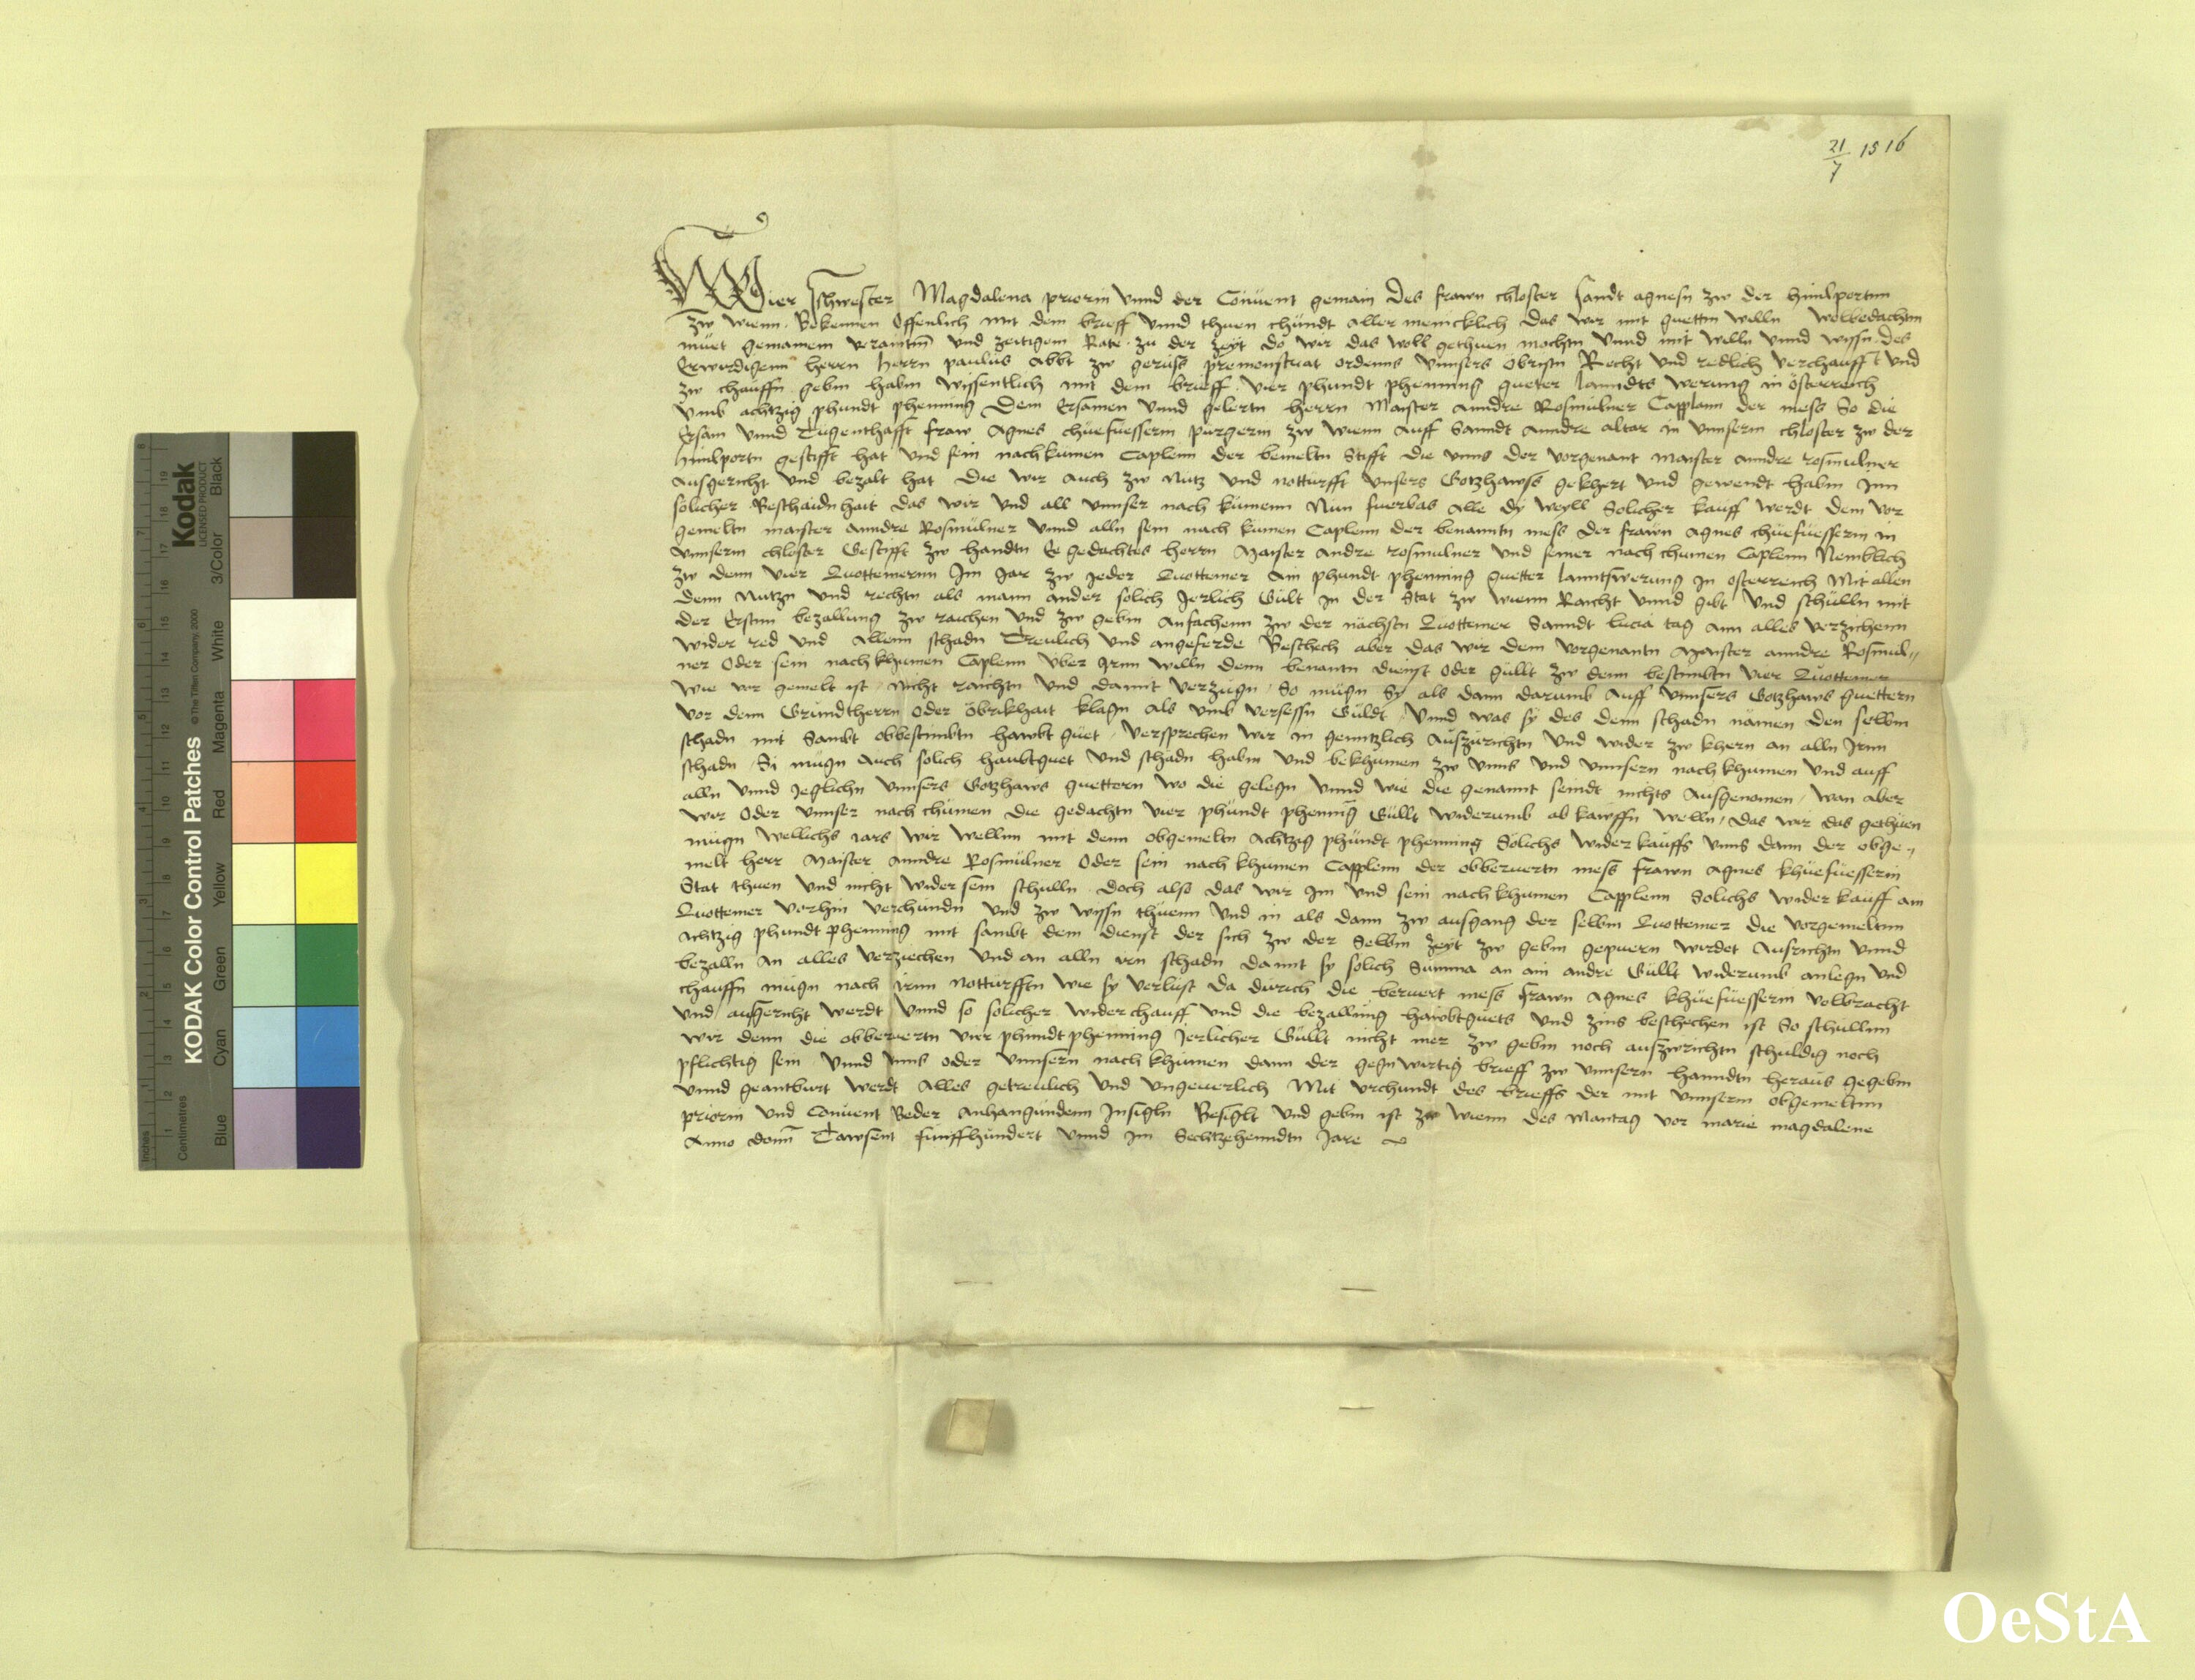 21/7 1516
Wier Schwester Magdalena priorin vnnd der Conuent gemain des frawn closter Sandt agnesn zw der himlportnn
zw wienn Bekennen Offenlich mit dem brieff vnnd thuen chundt aller menicklich das wir mit guettm willn wolbedachtm
muet gemainem veraintm vnd zeitigem Rate zu der zeyt do wir das woll gethuen mochtn vnnd mit willn vnnd wissn des
Erwirdigenn herrn herrn paulus Abbt zw geruss premonstrat ordenns vnnsers Obristn Recht vnd redlich verchaufft vnd
zw chauffn gebm habm wissentlich mit dem brieff vier phundt phenning gueter lanndts werung in österreich
vmb achtzig phundt phenning Dem Ersamen vnnd gelertn herrn Maister anndre Rosmulner Capplann der mess So die
Ersam vnnd Tugenthafft fraw Agnes chuefuesserin purgerin zw wienn auff Sanndt anndre altar in vnnserm chloster zw der
himlportn gestifft hat vnd sein nachkumen Caplenn der bemeltn Stifft die vnns der vorgenant maister anndre rosmulner
Ausgericht vnd bezalt hat Die wir auch zw Nutz vnd notturfft vnsers Gotzhawss gekhert vnd gewendt habm Inn
solicher Beschaidnhait das wir vnd all vnnser nach kumenn Nun fuerbas alle dy weyll Solicher kauff werdt dem vor
gemeltn maister anndre Rosmulner vnnd alln sein nach kumen Caplenn der benanntn mess der frawn Agnes chuefuesserin in
vnnserm chloster Gestifft zw handtn Egedachtes herrn Maister andre rosmulner vnd seiner nach chumen Caplenn Nemblich
zw denn vier Quottemernn Im Jar zw yeder Quottemer Ain phundt phenning guetter lanntswerung In osterreich Mit allen
denn Nutzn vnd rechtn als mann ander solich Jerlich Gult in der Stat zw wienn Raicht vnnd gibt vnd schulln mit
der Erstnn bezallung zw raichen vnd zw gebm Anfachenn zw der nachstn Quottemer Sanndt lucia tag Ann alles verzichenn
wider red vnd Allenn schadn Treulich vnd angeferde Beschech aber das wir dem vorgenantn Maister anndre Rosmul-
ner Oder sein nachkhumen Caplenn vber Irnn willn denn benantn dienst oder gullt zw denn bestimbtn vier Quottemer
wie vor gemelt ist nicht raichtn vnd damit verzugn So mugn Sy als dann darumb Auff vnnsers Gotzhaws guettern
vor denn Grundtherrn Oder Obrikhait klagn als vmb versessn Guldt vnnd was sy des denn schadn namen den selbm
schadn mit Sambt obbestimbtn hawbt guet versprechen wir in genntzlich Auszurichtn vnd wider zw khern an alln Irnn
schadn Si mugn Auch solich haubtguet vnd schadn habm vnd bekhumen zw vnns vnd vnnsern nach khumen vnd auff
alln vnnd yeglichn vnnsers Gotzhaws guettern wo die gelegn vnnd wie die genannt seindt nichts Ausgenomen wan aber
wir Oder vnnser nach chumen die gedachtn vier phundt phenning Gullt widerumb ab kawffn welln das wir das gethuen
mugn wellichs Jars wir wellnn mit denn obgemeltn Achtzig phundt phenning Solichs wider kauffs vnns dann der obge-
melt herr Maister anndre Rosmulner Oder sein nach khumen Capplenn der obberuertn mess frawn Agnes khuefuesserin
Stat thuen vnd nicht wider sein schulln doch also das wir Im vnd sein nach khumen Capplenn Solichs wider kauff am
Quottemer vorhin verchundn vnd zw wissn thuenn vnd in als dann zw ausgang der selbm Quottemer die vorgemeltnn
Achtzig phundt phenning mit sambt dem dienst der sich zw der Selbm zeyt zw gebm gepuern wirdet Ausrichtn vnnd
bezalln An alles verziechen vnd an alln irn schadn damit sy solich Summa an ain andre Gullt widerumb anlegn vnd
chauffn mugn nach irnn notturfftn wie sy verlust da durich die beruert mess frawn Agnes khuefuesserin volbracht
vnd ausgericht werdt vnnd so solicher widerchauff vnd die bezallung hawbtguets vnd zins beschechen ist So schullnn
wir denn die obberuertn vier phundt phenning Jerlicher Gullt nicht mer zw gebm noch auszwrichtn schuldig noch
pflichtig sein vnnd vnns oder vnnsern nach khumen dann der gegnwirtig brieff zw vnnsern hanndtn heraus gegebm
vnnd geantburt werdt Alles getreulich vnd vngeuerlich Mit vrchundt des brieffs der mit vnnserm obgemeltnn
priorin vnd Conuent Beder Anhangundenn Insigln Besiglt vnd gebm ist zw wienn des Mantag vor marie magdalene
Anno domi Tawsent funffhundert vnnd im Sechtzehenndtn Jare
KODAK Color Control Patches © The Tiffen Company, 2000
Kodak LICENSED PRODUCT
Inches
Centimetres
Blue Cyan Green Yellow Red Magenta White 3/Color Black
OeStA